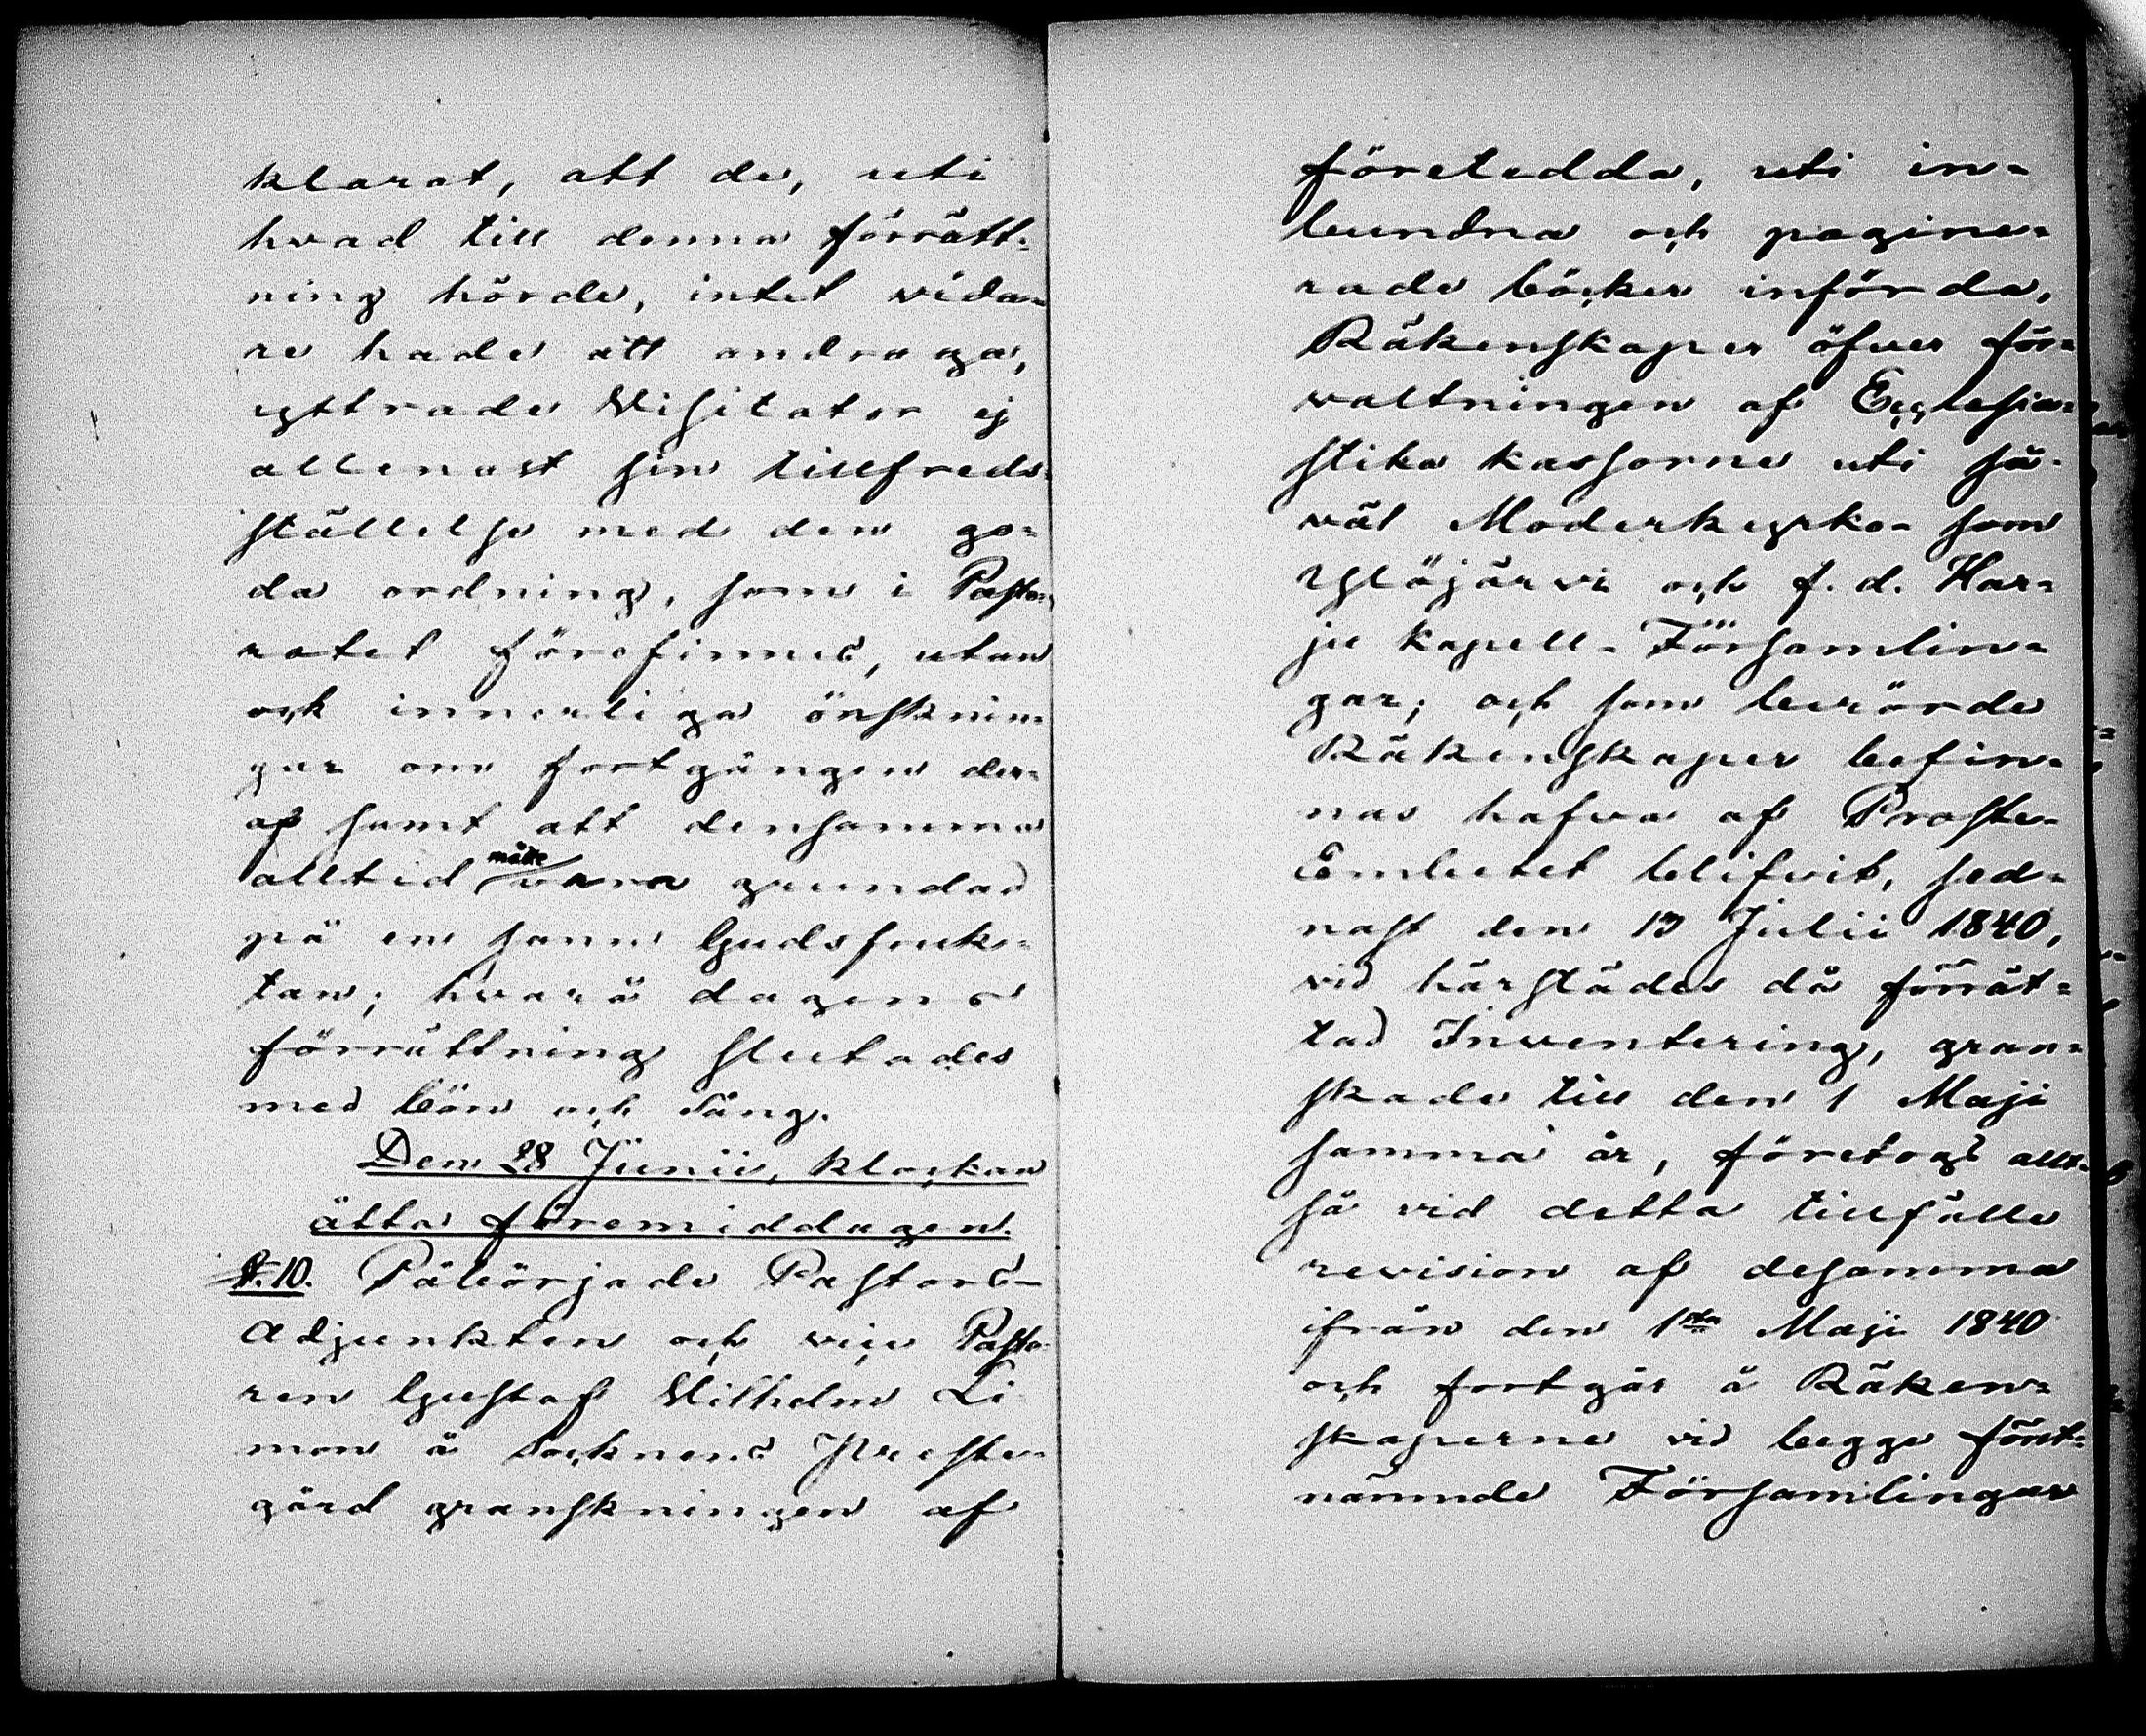 klarat, att de, uti
hvad till denna förrätt-
ning hörde, intet vida-
re hade att andraga,
yttrade Visitator ej
allenast sin tillfreds-
ställelse med den go-
da ordning, som i Pasto-
ratet förefinnes, utan
ock innerliga önsknin-
gar om fortgången der-
af samt att densamma
alltid måtte vara grundad
på en sann Gudsfruk-
tan; hvarå dagens
förrättning slutades
med bön och Sång.
Den 28 Junii, klockan
åtta föremiddagen.
§. 10. Påbörjade Pastors-
Adjunkten och vice Pasto-
ren Gustaf Wilhelm Li-
mon å Socknens Preste-
gård granskningen af
företedda, uti in-
bundna och pagine-
rade böcker införda,
Räkenskaper öfver för-
valtningen af Ecclesia-
stika kassorne uti så-
väl Moderkyrko- som
Ylöjärvi och f. d. Har-
ju kapell-Församlin-
gar; och som berörde
Räkenskaper befin-
nas hafva af Proste-
Embetet blifvit, sed-
nast den 13 Julii 1840,
vid härstädes då förrät-
tad Inventering, gran-
skade till den 1 Maji
samma år, företogs allt-
så vid detta tillfälle
revision af desamma
ifrån den 1sta Maji 1840
och fortgår å Räken-
skaperne vid begge först-
nämnde Församlingar